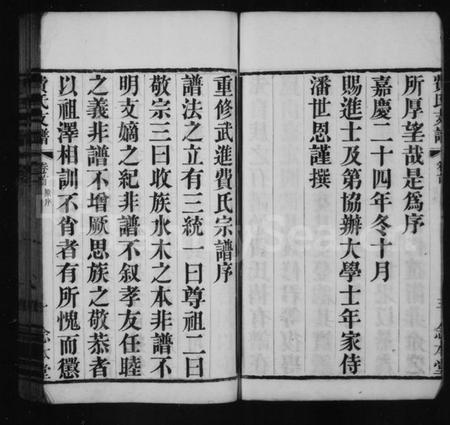 所厚望哉是爲序
嘉慶二十四年冬十月
賜進士及第協辦大學士年家侍
潘世恩謹撰
重修武進費氏宗譜序
譜法之立有三統一曰尊祖二曰
敬宗三曰收族水木之本非譜不
明支嫡之紀非譜不叙孝友任睦
之義非譜不增厥思族之敬恭者
以祖澤相訓不肖者有所愧而懲
費氏支譜
卷首
念本堂